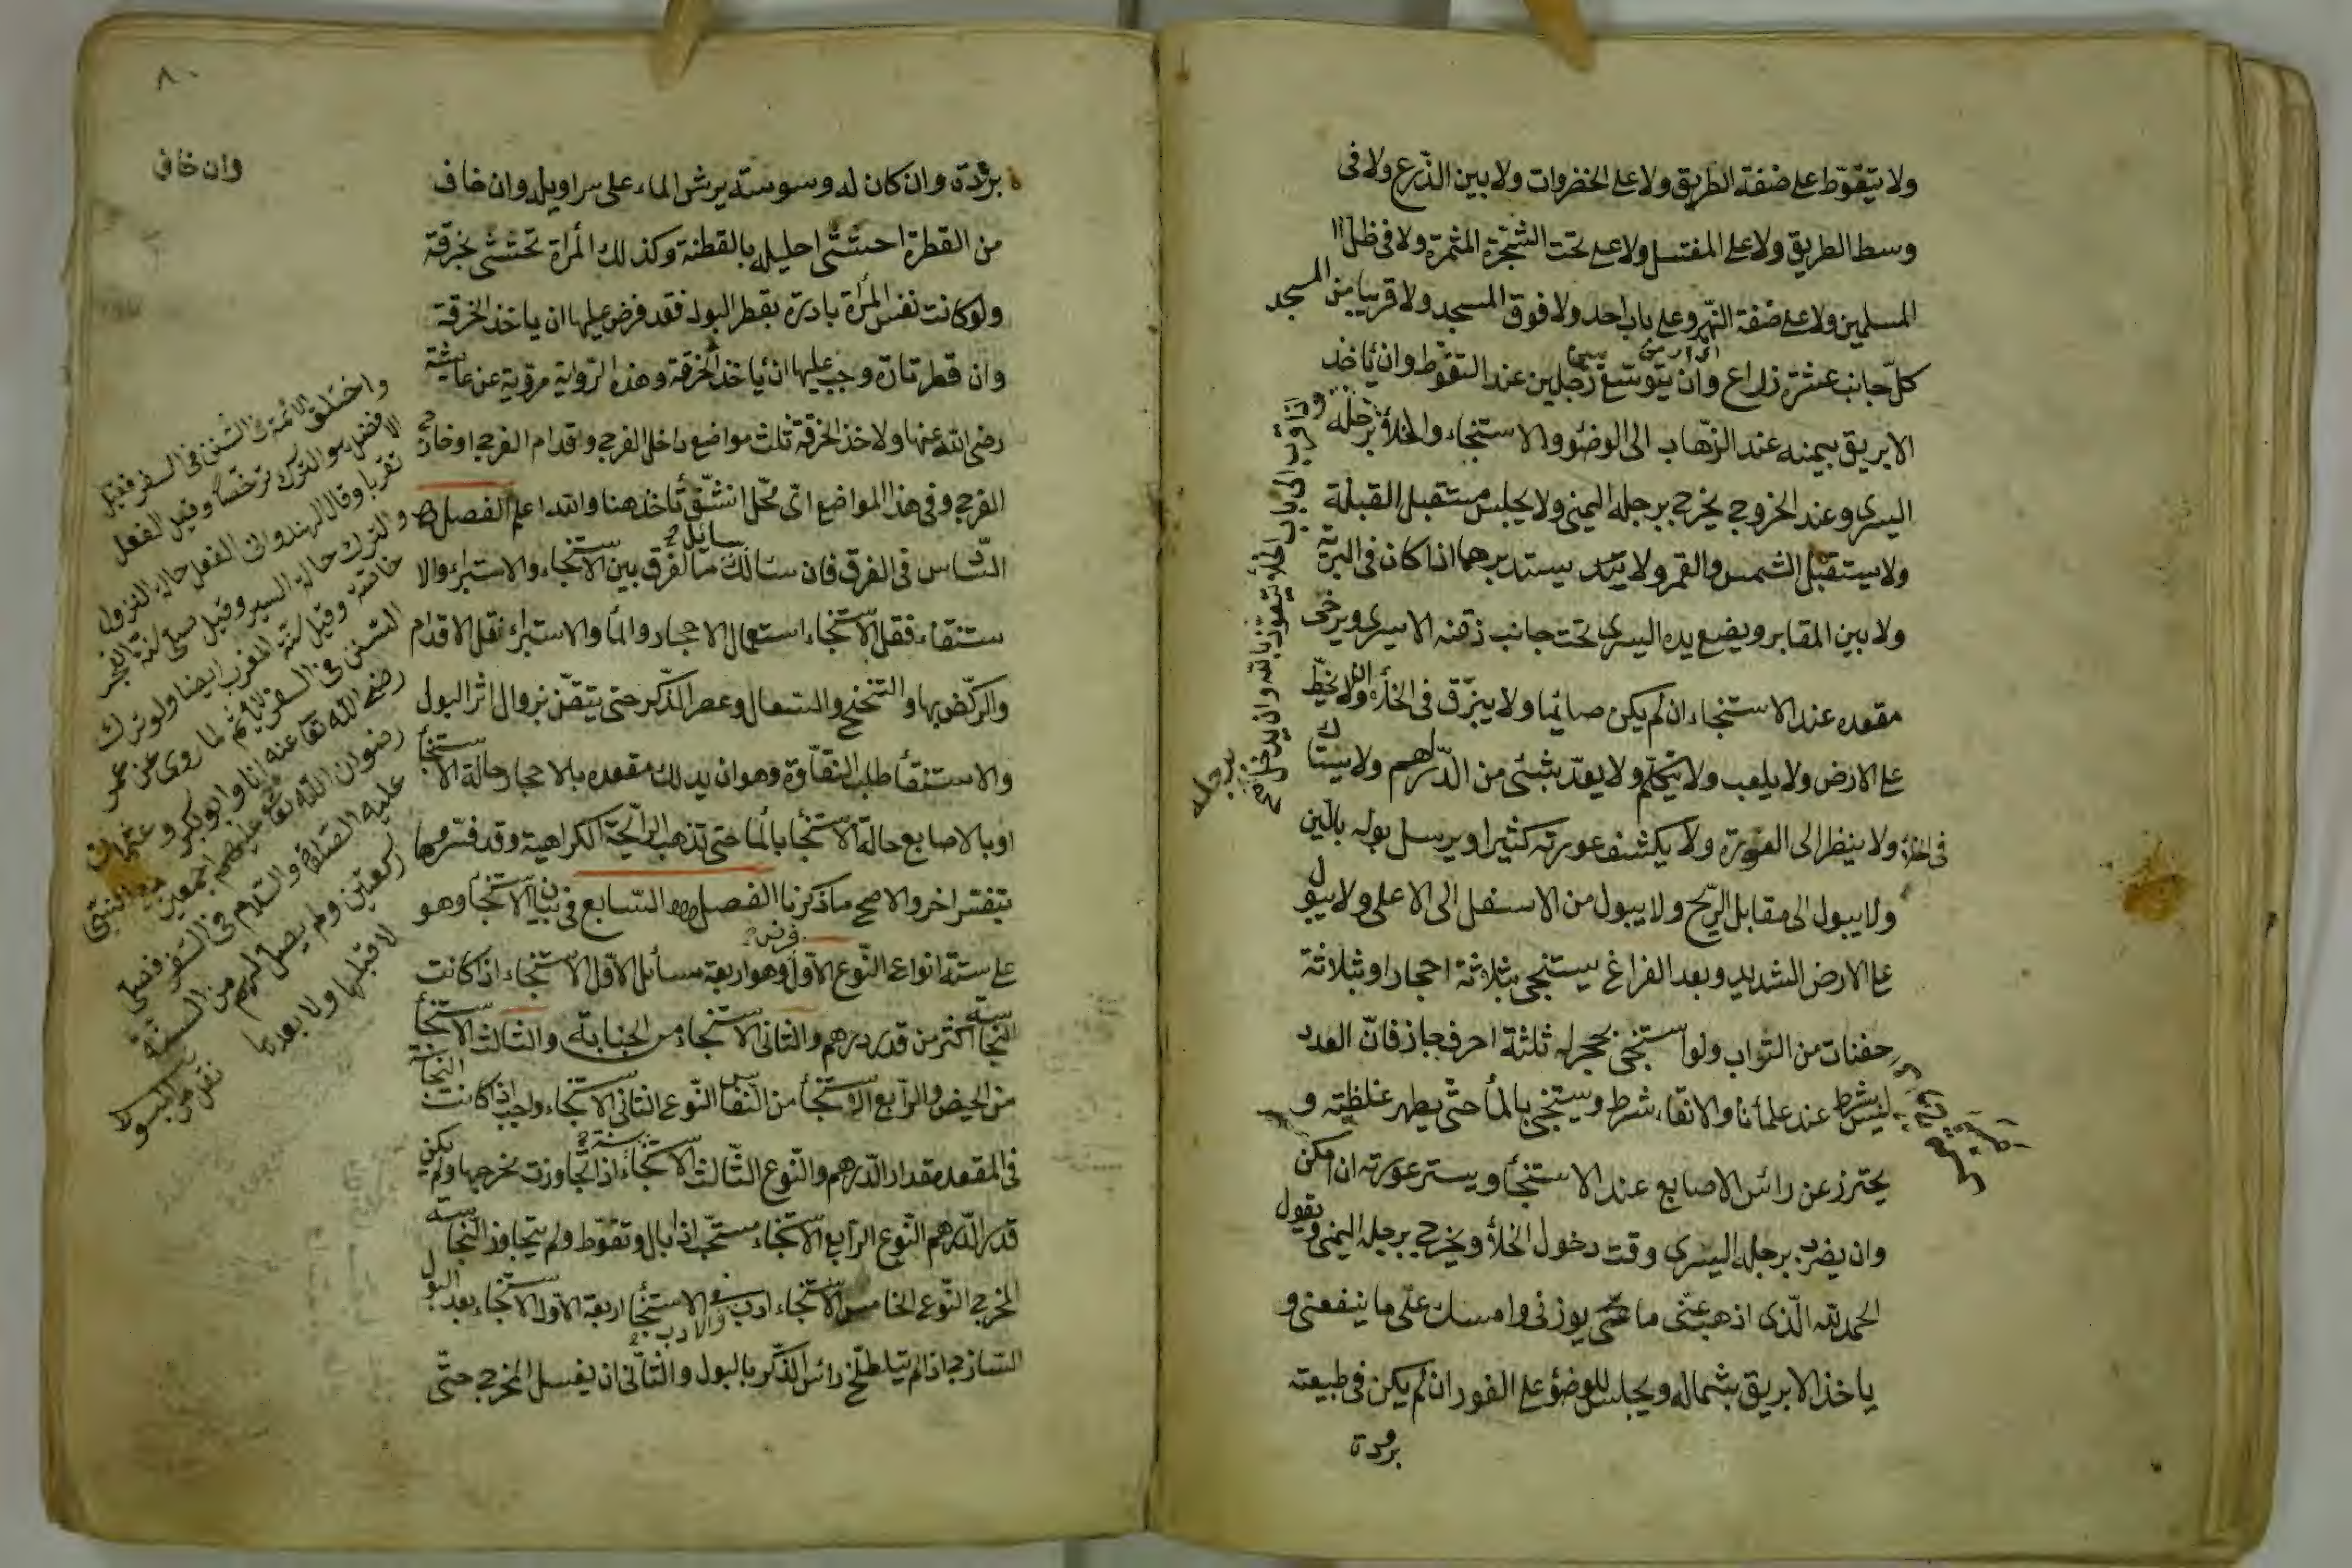 ولا يتغوّط على ضفة الطريق ولا على الخضروات ولا بين الذّرع ولا فى
وسط الطريق ولا على المغتسل ولا على تحت الشّجرة المثمرة ولا فى ظلّ ال
المسلمين ولا على ضفة النّهر وعلى باب احد ولا فوق المسجد ولا قريبا من المسجد
كلّ جانب عشرة زراع وان يتوسّع رجلين عند التغوّط وان يأخذ
الابريق بيمنه عند الذّهاب الى الوضؤ والاستنجاء والخلأ برجله
اليسرى وعند الخروج يخرج برجله اليمنى ولا يجلس مستقبل القبلة
ولا يستقبل الشمس والقمر ولا يستدبرهما اذا كان فى البريّة
ولا بين المقابر ويضع يده اليسرى تحت جانب ذقنه الايسرى ويرخى
مقعده عند الاستنجاء ان لم يكن صائما ولا يبزّق فى الخلأ ولا يخطّ
على الارض ولا يلعب ولا يتكلّم ولا يعدّ بشئ من الدّراهم ولا يستاك
فى الخلأ ولا ينظر الى العورة ولا يكشف عورته كثيرا ويرسل بوله بالّين
ولا يبول الى مقابل الرّيح ولا يبول من الاسفل الى الاعلى ولا يبول
على الارض الشديد وبعد الفراغ يستنجى بثلاثة احجار او بثلاثة
حفنات من التّراب ولو استنجى بحجر له ثلثة احرف جاز فانّ العدد
ليس بشرط عند علمأنا والانقاء شرط ويستنجى بالمأ حتّى يطهر غلظته و
يحترز عن رائس الاصابع عند الاستنجأ ويستر عورته ان امكن
وان يضرب برجله اليسرى وقت دخول الخلأ ويخرج برجله اليمنى ويقول
الحمد لله الّذى اذهب عنّى ما يوزنى وامسك علّى ما ينفعنى و
ياخذ الابريق بشماله ويجلس للوضؤ على الفور ان لم يكن فى طبيعته
برودة
٨٠
برودة وان كان له وسوسة يرش الماء على سراويله وان خاف
من القطرة احتشى احليله بالقطنة وكذلك المرأة تحتشى بخرقة
ولو كانت نفس المرأة بادرة بقطر البول فقد فرض عليها ان ياخذ الخرقة
وان قطر تارة وجب عليها ان يأخذ الخرقة وهذه الرّواية مرويّة عن عايشة
رضى الله عنها ولاخذ الخرقة ثلث مواضع داخل الفرج واقدام الفرج او خارج
الفرج وفى هذا المواضع اىّ محّل انشّق تأخذ هنا والله اعلم الفصل
السّاس فى الفرق فان سئالك سائل ما الفرق بين الاستنجاء والاستبراء والا
ستنقاء فقل الاستنجاء استعمال الاحجار والمأ والاستبراء نقل الاقدام
والركّض بها والتنحنح والسّعال وعصر الذّكر حتى يتيقّن بزوال اثر البول
والاستنقأ طلب النقاوة وهو ان يدلك مقعده بالاحجار حالة الاستنجأ
او بالاصابع حالة الاستنجا بالمأ حتى تذهب الرّائحة الكراهية وقد فسّرها
بتفسر اخر والاصح ما ذكرنا الفصل السّابع فى بيان الاستنجأ وهو
على ستة انواع النّوع الاوّل فرض وهو اربعة مسائل الاوّل الاستنجاء اذا كانت
النجاسة اكثر من قدر درهم والثانى الاستنجاء من الجنابة والثالث الاستنجأ
من الحيض والرّابع الاستنجأ من النّفاس النّوع الثانى الاستنجاء واجب اذا كانت النجاسة
فى المقعد مقدار الدّرهم والنّوع الثّالث الاستنجاء سنة اذا تجاوزت مخرجها ولم يكن
قدر الدّرهم النّوع الرّابع الاستنجاء مستحّب اذا بال وتغوّط ولم يتجاوز النّجاسة
المخرج النّوع الخامس الاستنجاء ادب والادب فى الاستنجأ اربعة الاوّل الاستنجاء بعد البول
السّازج اذ لم يتلطّخ رائس الذّكر بالبول والثّانى ان يغسل المخرج حتّى
وان خاف
واختلف الائمة فى السّنن فى السفر فقيل
الافضل هو الترك ترخّصا وقيل الفعل
تقرّبا وقال الهندوانى الفعل حالة النزول
والترك حالة السير وقيل يصلّى سنّة الفجر
خاصّة وقيل سنّة المغرب ايضا ولو ترك
السّنن فى السفر لا يأثم لما روى عن عمر
رضى الله تعا عنه انا وابو بكر وعثمان
رضوان الله تعا عليهم اجمعين مع النبّى
عليه الصلوة والسّلام فى السّفر فصلّى
ركعتين ولم يصل لهم من السنّة
لا قبلها ولا بعدها
نقل من المبسوط